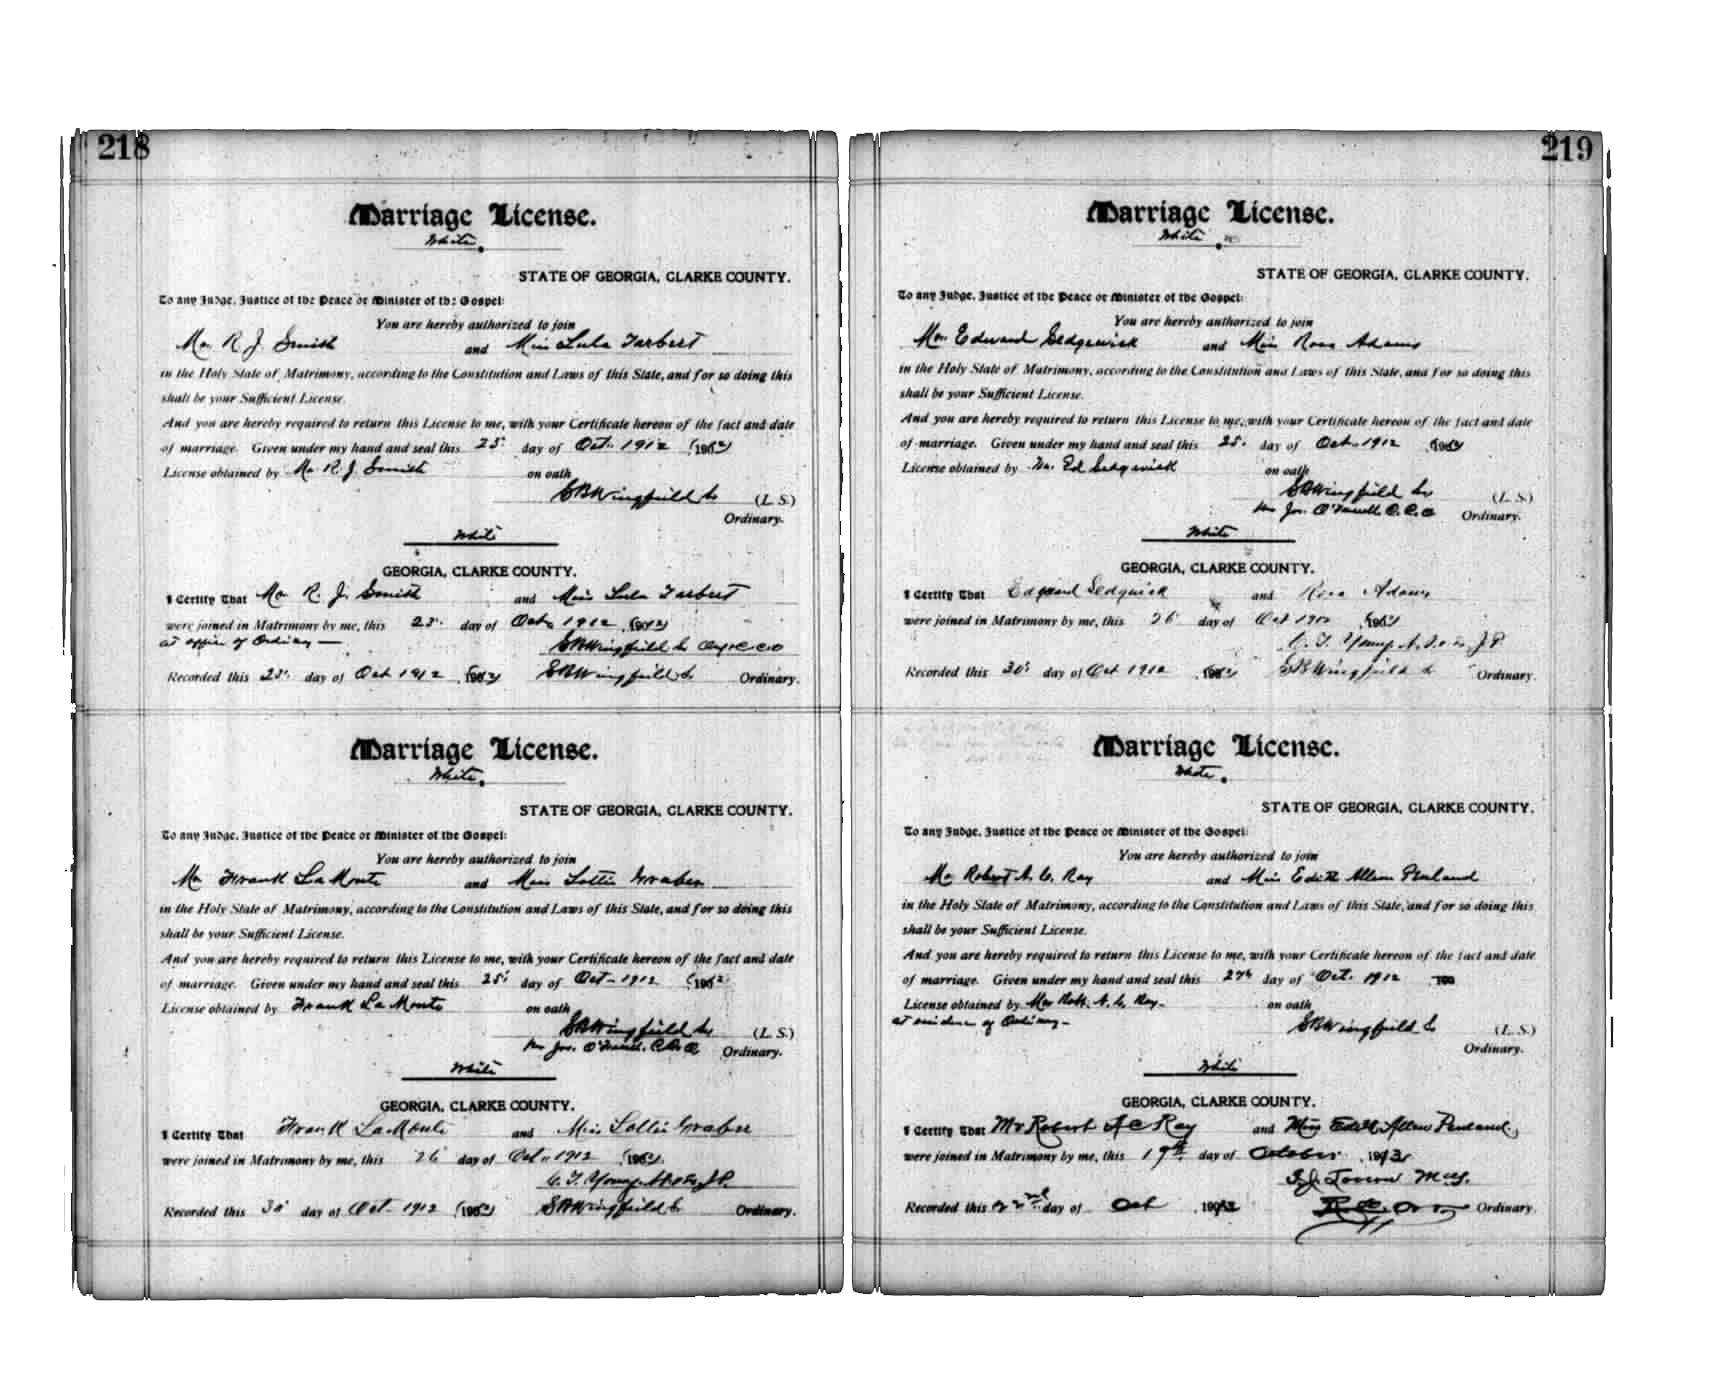 218
Marriage License.
White.
STATE OF GEORGIA, CLARKE COUNTY.
To any Judge, Justice of the Peace or Minister of the Gospel:
You are hereby authorized to join
Mr. R. J. Smith and Miss Lula Tarbert
in the Holy State of Matrimony, according to the Constitution and Laws of this State, and for so doing this
shall be your Sufficient License.
And you are hereby required to return this License to me, with your Certificate hereon of the fact and date
of marriage. Given under my hand and seal this 25" day of Oct. 1912 190
License obtained by Mr R. J. Smith on oath
S B Wingfield (L. S.)
Ordinary.
White
GEORGIA, CLARKE COUNTY.
I Certify That Mr R. J. Smith and Miss Lula Tarbert
were joined in Matrimony by me, this 25" day of Oct. 1912 190
at office of Ordinary —
S B Wingfield
Recorded this 25" day of Oct 1912 190 S B Wingfield Ordinary.
Marriage License.
White.
STATE OF GEORGIA, CLARKE COUNTY.
To any Judge, Justice of the Peace or Minister of the Gospel:
You are hereby authorized to join
Mr Frank LaMonte and Miss Lottie Graben
in the Holy State of Matrimony, according to the Constitution and Laws of this State, and for so doing this
shall be your Sufficient License.
And you are hereby required to return this License to me, with your Certificate hereon of the fact and date
of marriage. Given under my hand and seal this 25" day of Oct - 1912 190
License obtained by Frank LaMonte on oath
S B Wingfield (L. S.)
Per Jos. Ordinary.
White
GEORGIA, CLARKE COUNTY.
I Certify That Frank LaMonte and Miss Lottie Graben
were joined in Matrimony by me, this 26 day of Oct. 1912 190
C. T. Young J P.
Recorded this 30" day of Oct. 1912 190 S B Wingfield Ordinary.
219
Marriage License.
White.
STATE OF GEORGIA, CLARKE COUNTY.
To any Judge, Justice of the Peace or Minister of the Gospel:
You are hereby authorized to join
Mr. Edward Sedgewick and Miss Rosa Adams
in the Holy State of Matrimony, according to the Constitution and Laws of this State, and for so doing this
shall be your Sufficient License.
And you are hereby required to return this License to me, with your Certificate hereon of the fact and date
of marriage. Given under my hand and seal this 25. day of Oct. 1912 190
License obtained by Mr. Ed Sedgewick on oath
S B Wingfield (L. S.)
Per Jos. Ordinary.
White
GEORGIA, CLARKE COUNTY.
I Certify That Edward Sedgwick and Rosa Adams
were joined in Matrimony by me, this 26 day of Oct 1912 190
C. T. Young J P.
Recorded this 30" day of Oct 1912 190 S B Wingfield Ordinary.
Marriage License.
White.
STATE OF GEORGIA, CLARKE COUNTY.
To any Judge, Justice of the Peace or Minister of the Gospel:
You are hereby authorized to join
Mr Robert A. C. Ray and Miss Edith Allen Penland
in the Holy State of Matrimony, according to the Constitution and Laws of this State, and for so doing this
shall be your Sufficient License.
And you are hereby required to return this License to me, with your Certificate hereon of the fact and date
of marriage. Given under my hand and seal this day of Oct. 1912 190
License obtained by Mr Robt. A. C. Ray - on oath
at residence of Ordinary -
S B Wingfield (L. S.)
Ordinary.
White
GEORGIA, CLARKE COUNTY.
I Certify That Mr Robert A C Ray and Miss Edith Allen Penland,
were joined in Matrimony by me, this 19th day of October
Recorded this 22nd day of Oct Ordinary.